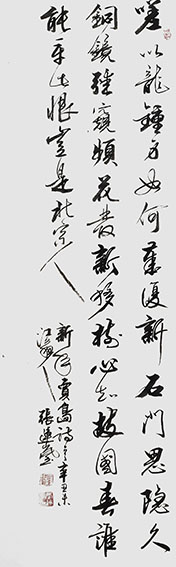 嗟以龍鍾身如何歲復新石門思隱久
銅鏡強窺頻花發新移樹心知故國春誰
能平此恨豈是北宗人
新年賈島詩辛丑
張